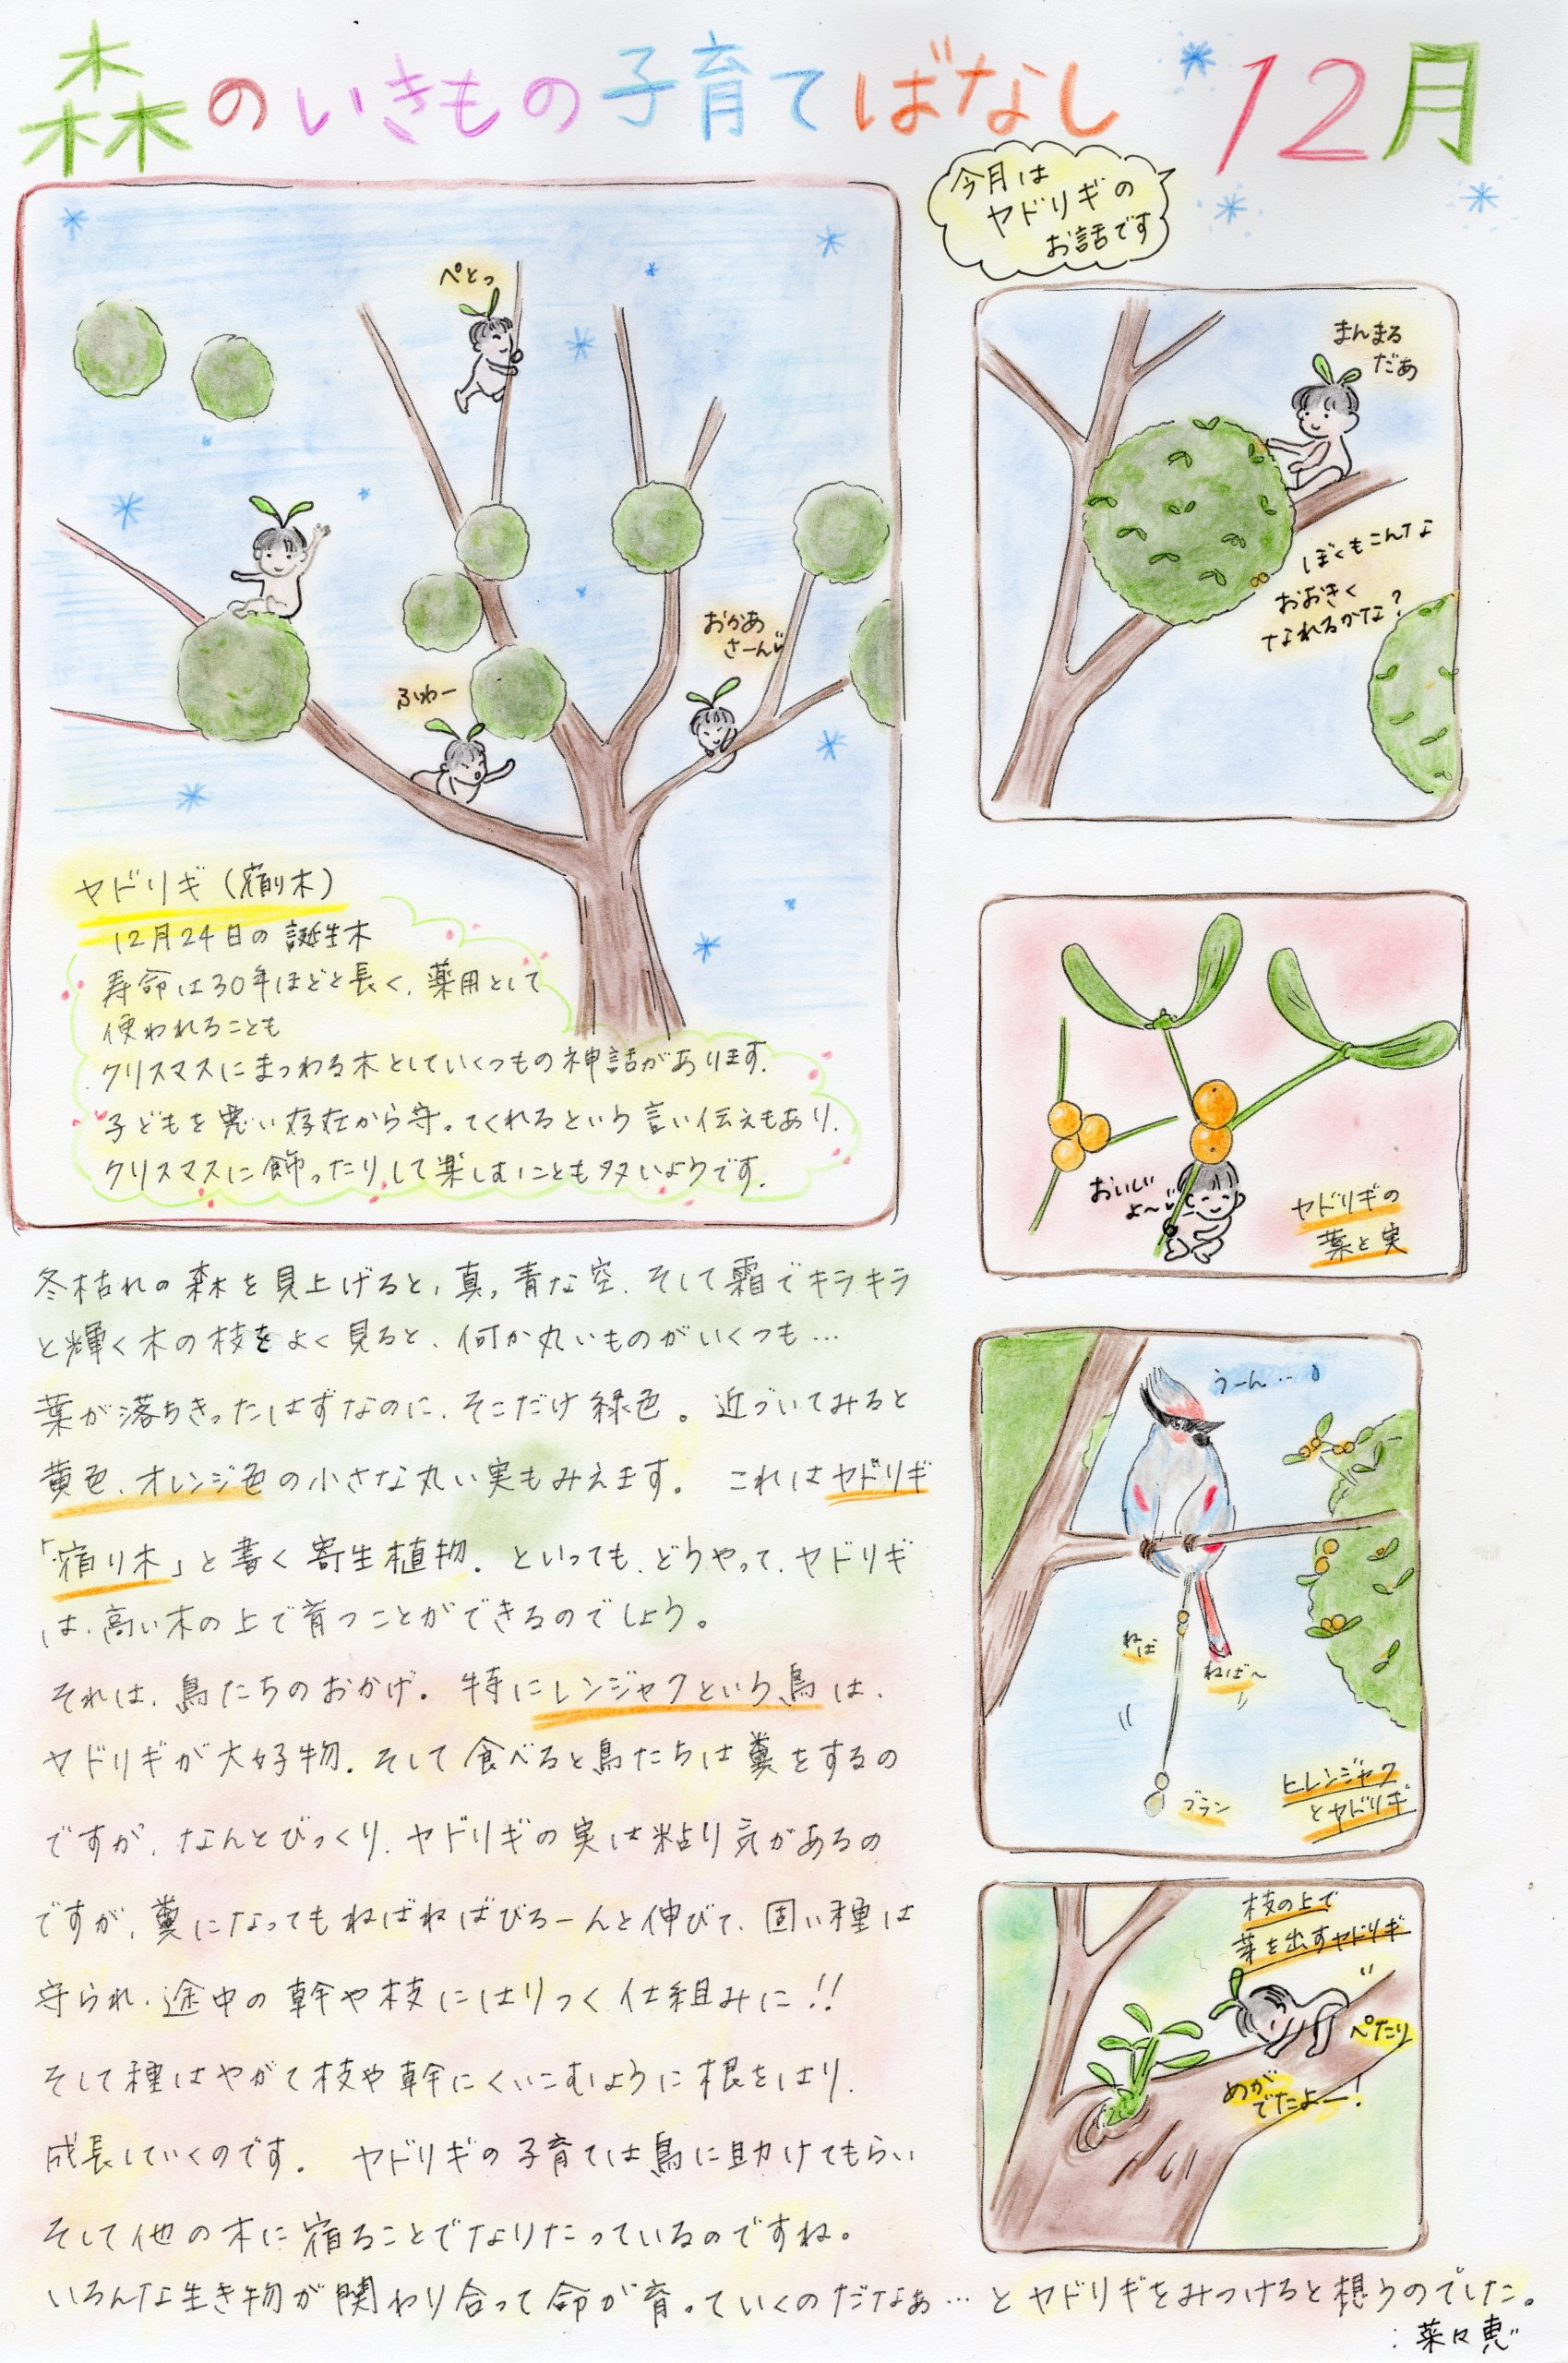 森のいきもの子育てばなし 12月
今月は
ヤドリギの
お話です
ぺとっ
ふわー
おかあ
さーん
ヤドリギ（宿り木）
12月24日の誕生木
寿命は30年ほどと長く、薬用として
使われることも
クリスマスにまつわる木としていくつもの神話があります。
子どもを悪い存在から守ってくれるという言い伝えもあり、
クリスマスに飾ったりして楽しむことも多いようです。
まんまる
だあ
ぼくもこんな
おおきく
なれるかな？
おいしい
よ〜
ヤドリギの
葉と実
うーん…
ねば
ねば〜
ブラン
ヒレンジャク
とヤドリギ
枝の上で
芽を出すヤドリギ
ぺたり
めが
でたよー！
冬枯れの森を見上げると、真っ青な空、そして霜でキラキラ
と輝く木の枝をよく見ると、何か丸いものがいくつも…
葉が落ちきったはずなのに、そこだけ緑色。近づいてみると
黄色、オレンジ色の小さな丸い実もみえます。これはヤドリギ
「宿り木」と書く寄生植物。といっても、どうやって、ヤドリギ
は、高い木の上で育つことができるのでしょう。
それは、鳥たちのおかげ。特にレンジャクという鳥は、
ヤドリギが大好物。そして食べると鳥たちは糞をするの
ですが、なんとびっくり、ヤドリギの実は粘り気があるの
ですが、糞になってもねばねばびろーんと伸びて、固い種は
守られ、途中の幹や枝にはりつく仕組みに!!
そして種はやがて枝や幹にくいこむように根をはり、
成長していくのです。ヤドリギの子育ては鳥に助けてもらい
そして他の木に宿ることでなりたっているのですね。
いろんな生き物が関わり合って命が育っていくのだなぁ…とヤドリギをみつけると想うのでした。
：菜々恵